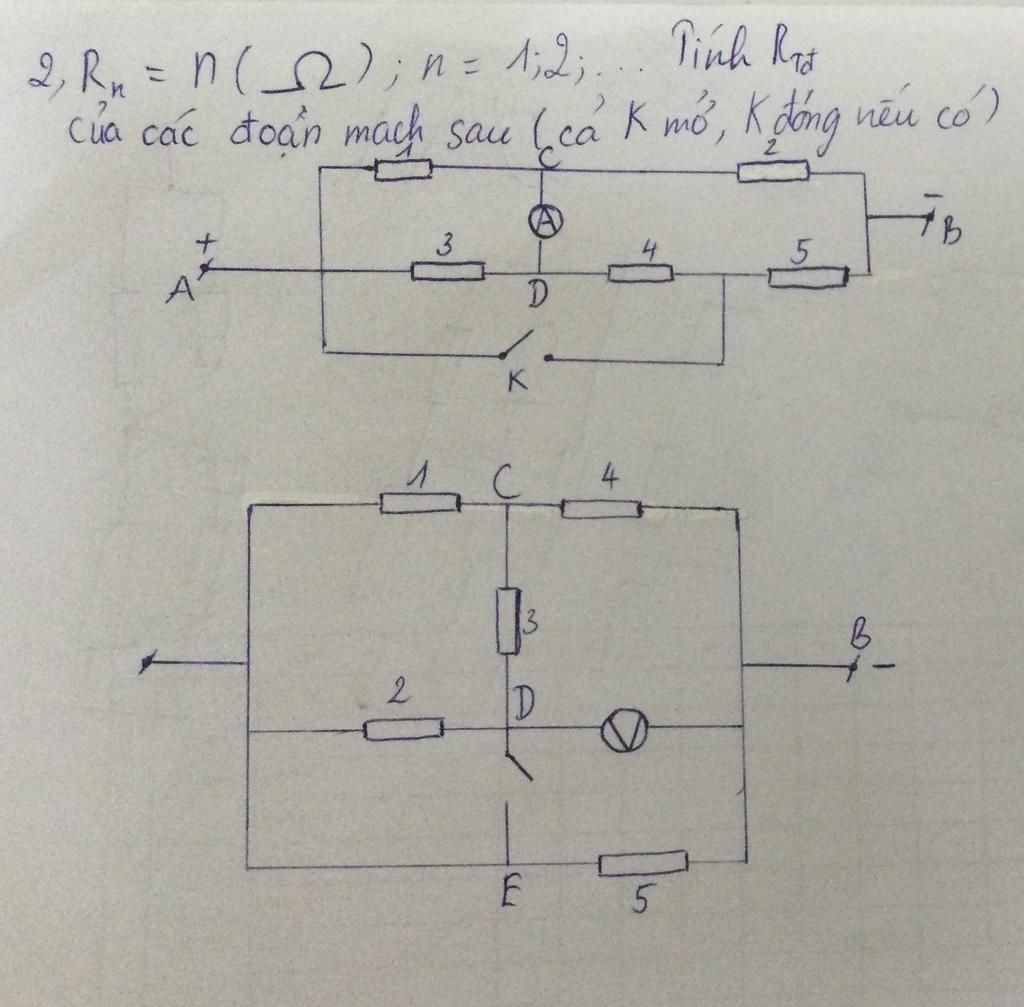 2, Rn = n (Ω); n = 1; 2; ... Tính RTđ
của các đoạn mạch sau (cả K mở, K đóng nếu có)
1 C 2
A
+ A 3 D 4 5 - B
K
1 C 4
3
B -
2 D V
E 5